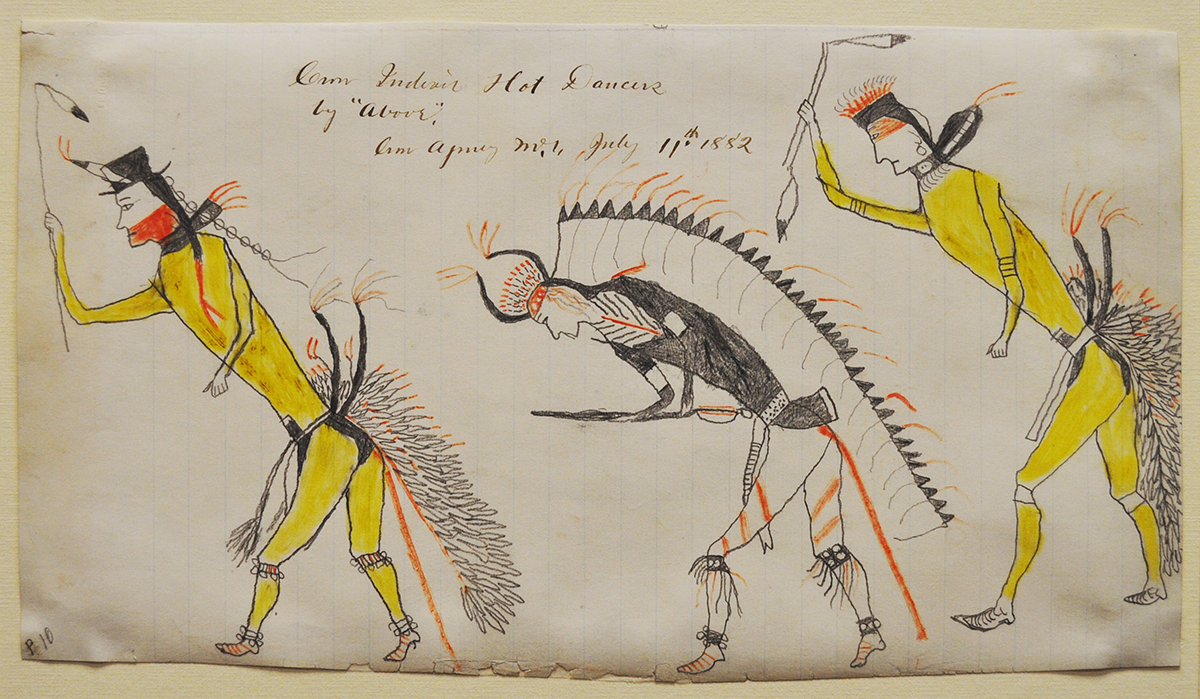 Crow Indian Hot Dancers
by "Above",
Crow Agency M.T., July 11th 1882
P. 10